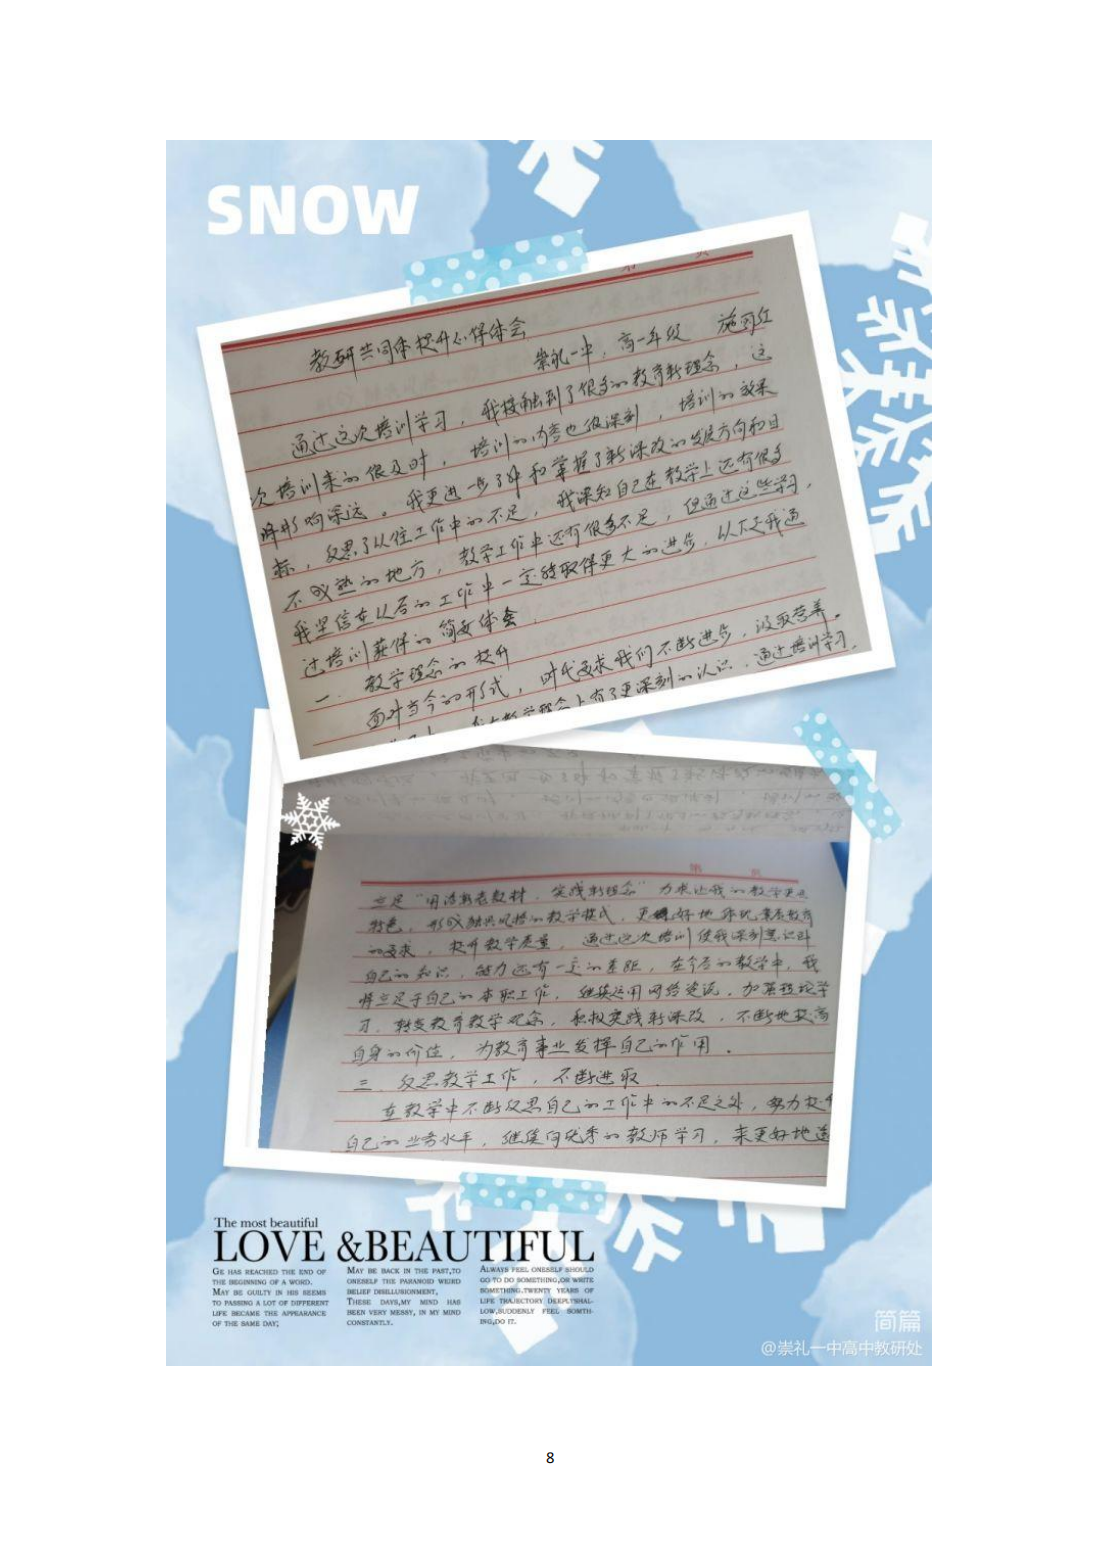 SNOW
第 页
教研共同体提升心得体会
崇礼一中，高一年级 施
通过这次培训学习，我接触到了很多的教育新理念，这
次培训来的很及时，培训的内容也很深刻，培训的效果
将影响深远。我更进一步了解和掌握了新课改的发展方向和目
标，反思了从往工作中的不足，我深知自己在教学上还有很多
不成熟的地方，教学工作中还有很多不足，但通过这些学习，
我坚信在从后的工作中一定能取得更大的进步，以下是我通
过培训获得的简要体会。
一、教学理念的提升
面对当今的形式，时代要求我们不断进步，汲取营养。
教学理念上有了更深刻的认识，通过培训学习，
第 页
立足“用活新老教材，实践新理念”力求让我的教学更具
特色，形成独具风格的教学模式，更好地体现素质教育
的要求，提升教学质量，通过这次培训使我深刻意识到
自己的知识，能力还有一定的差距，在今后的教学中，我
将立足于自己的本职工作，继续运用网络资源，加强理论学
习，转变教育教学观念，积极实践新课改，不断地提高
自身的价值，为教育事业发挥自己的作用。
三、反思教学工作，不断进取
在教学中不断反思自己的工作中的不足之处，努力提升
自己的业务水平，继续向优秀的教师学习，来更好地适
The most beautiful
LOVE &BEAUTIFUL
GE HAS REACHED THE END OF
THE BEGINNING OF A WORD.
MAY BE GUILTY IN HIS SEEMS
TO PASSING A LOT OF DIFFERENT
LIFE BECAME THE APPEARANCE
OF THE SAME DAY;
MAY BE BACK IN THE PAST,TO
ONESELF THE PARANOID WEIRD
BELIEF DISILLUSIONMENT,
THESE DAYS,MY MIND HAS
BEEN VERY MESSY, IN MY MIND
CONSTANTLY.
ALWAYS FEEL ONESELF SHOULD
GO TO DO SOMETHING,OR WRITE
SOMETHING.TWENTY YEARS OF
LIFE TRAJECTORY DEEPLYSHAL-
LOW,SUDDENLY FEEL SOMTH-
ING,DO IT.
简篇
@崇礼一中高中教研处
8